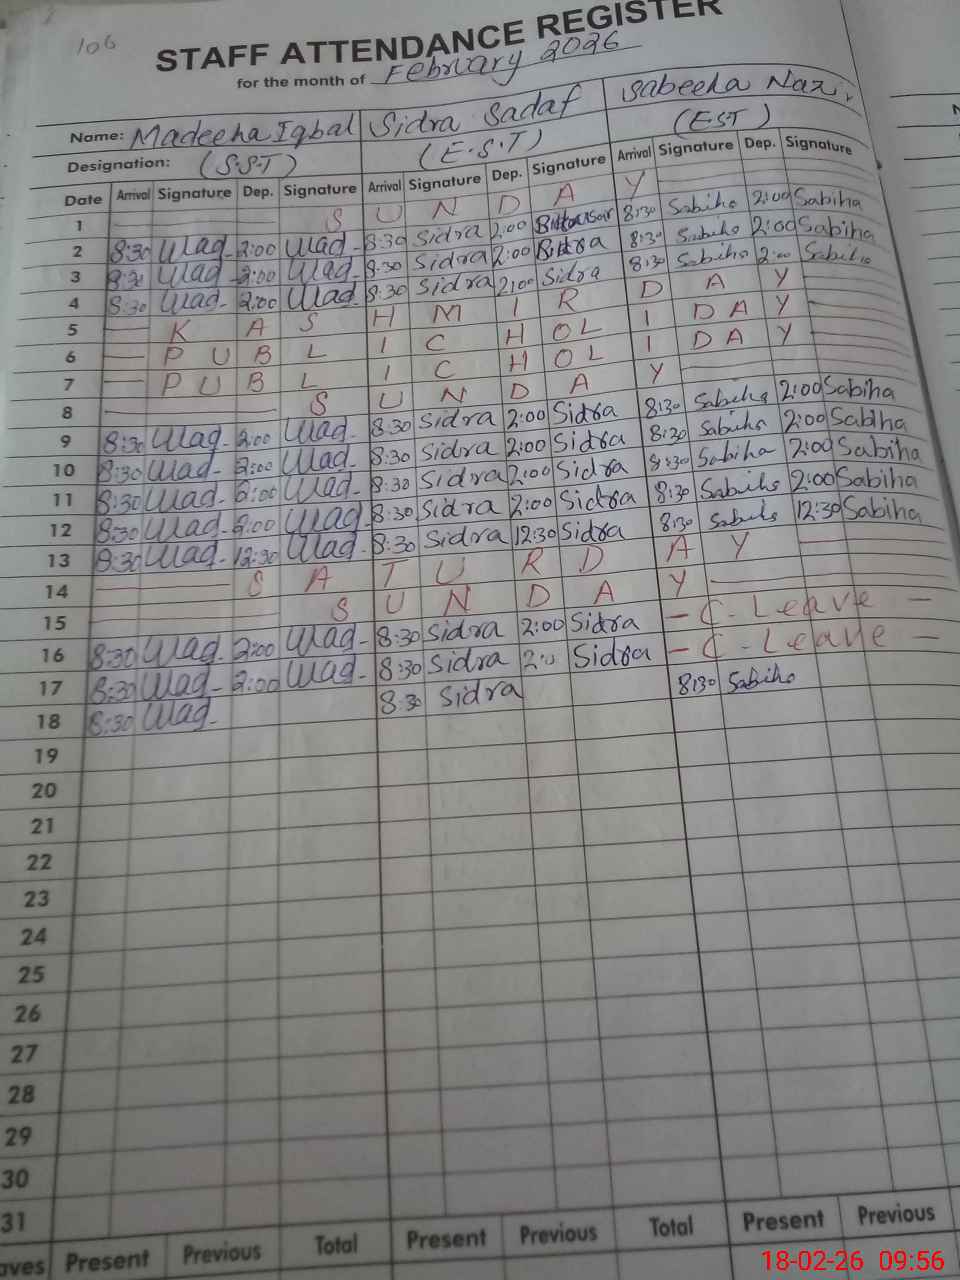 106
STAFF ATTENDANCE REGISTER
for the month of February 2026
Name: Madeeha Iqbal Sidra Sadaf Sabeeha Naz
Designation: (S.S.T) (E.S.T) (EST)
Date Arrival Signature Dep. Signature Arrival Signature Dep. Signature Arrival Signature Dep. Signature
1 S U N D A Y
2 8:30 2:00 8:30 Sidra 2:00 8:30 Sabiha 2:00 Sabiha
3 8:30 2:00 8:30 Sidra 2:00 8:30 Sabiha 2:00 Sabiha
4 8:30 2:00 8:30 Sidra 2:00 Sidra 8:30 Sabiha 2:00 Sabiha
5 K A S H M I R D A Y
6 P U B L I C H O L I D A Y
7 P U B L I C H O L I D A Y
8 S U N D A Y
9 8:30 2:00 8:30 Sidra 2:00 Sidra 8:30 Sabiha 2:00 Sabiha
10 8:30 2:00 8:30 Sidra 2:00 Sidra 8:30 Sabiha 2:00 Sabiha
11 8:30 2:00 8:30 Sidra 2:00 Sidra 8:30 Sabiha 2:00 Sabiha
12 8:30 2:00 8:30 Sidra 2:00 Sidra 8:30 Sabiha 2:00 Sabiha
13 8:30 12:30 8:30 Sidra 12:30 Sidra 8:30 Sabiha 12:30 Sabiha
14 S A T U R D A Y
15 S U N D A Y
16 8:30 2:00 8:30 Sidra 2:00 Sidra - C - Leave -
17 8:30 2:00 8:30 Sidra Sidra - C - Leave -
18 8:30 8:30 Sidra 8:30 Sabiha
19
20
21
22
23
24
25
26
27
28
29
30
31
Present Previous Total Present Previous Total Present Previous
18-02-26 09:56